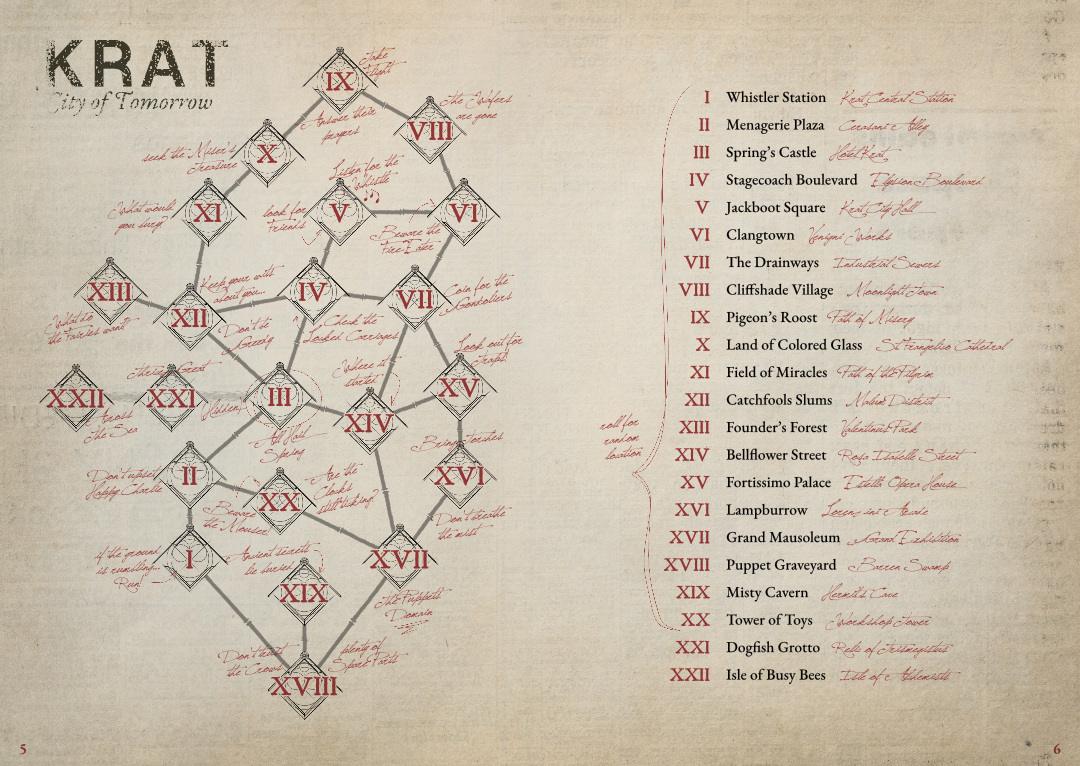 KRAT
City of Tomorrow
IX
Take
Flight
Answer their
prayers
VIII
the Wolfers
are gone
X
seek the Miser's
Treasure
Listen for the
Whistle
XI
What would
you sing?
V
look for
Friends
VI
Beware the
Fire Eater
XIII
What do
the Fairies want?
XII
Keep your wits
about you...
Don't be
Greedy
IV
Check the
Locked Carriages
VII
Coin for the
Gondoliers
XXII
Across
the Sea
XXI
III
Hidden
All Hail
Spring
Where it
started
XIV
XV
Look out for
Traps!
II
Don't upset
Happy Charlie
XX
Beware
the Mouser!
Are the
Clocks
still ticking?
XVI
Bring Torches
Don't breathe
the mist
I
if the ground
is rumbling...
Run!
Ancient secrets
lie buried
XIX
XVII
the Puppets
Domain
XVIII
Don't trust
the Crows
plenty of
Spare Parts
roll for
random
location
I Whistler Station Krat Central Station
II Menagerie Plaza Cerasani Alley
III Spring's Castle Hotel Krat
IV Stagecoach Boulevard Elysion Boulevard
V Jackboot Square Krat City Hall
VI Clangtown Venigni Works
VII The Drainways Industrial Sewers
VIII Cliffshade Village Moonlight Town
IX Pigeon's Roost Path of Misery
X Land of Colored Glass St Frangelico Cathedral
XI Field of Miracles Path of the Pilgrim
XII Catchfools Slums Malum District
XIII Founder's Forest Valentinus Park
XIV Bellflower Street Rosa Isabelle Street
XV Fortissimo Palace Estella Opera House
XVI Lampburrow Lorenzini Arcade
XVII Grand Mausoleum Grand Exhibition
XVIII Puppet Graveyard Barren Swamp
XIX Misty Cavern Hermit's Cave
XX Tower of Toys Workshop Tower
XXI Dogfish Grotto Relic of Trismegistus
XXII Isle of Busy Bees Isle of Alchemists
5
6